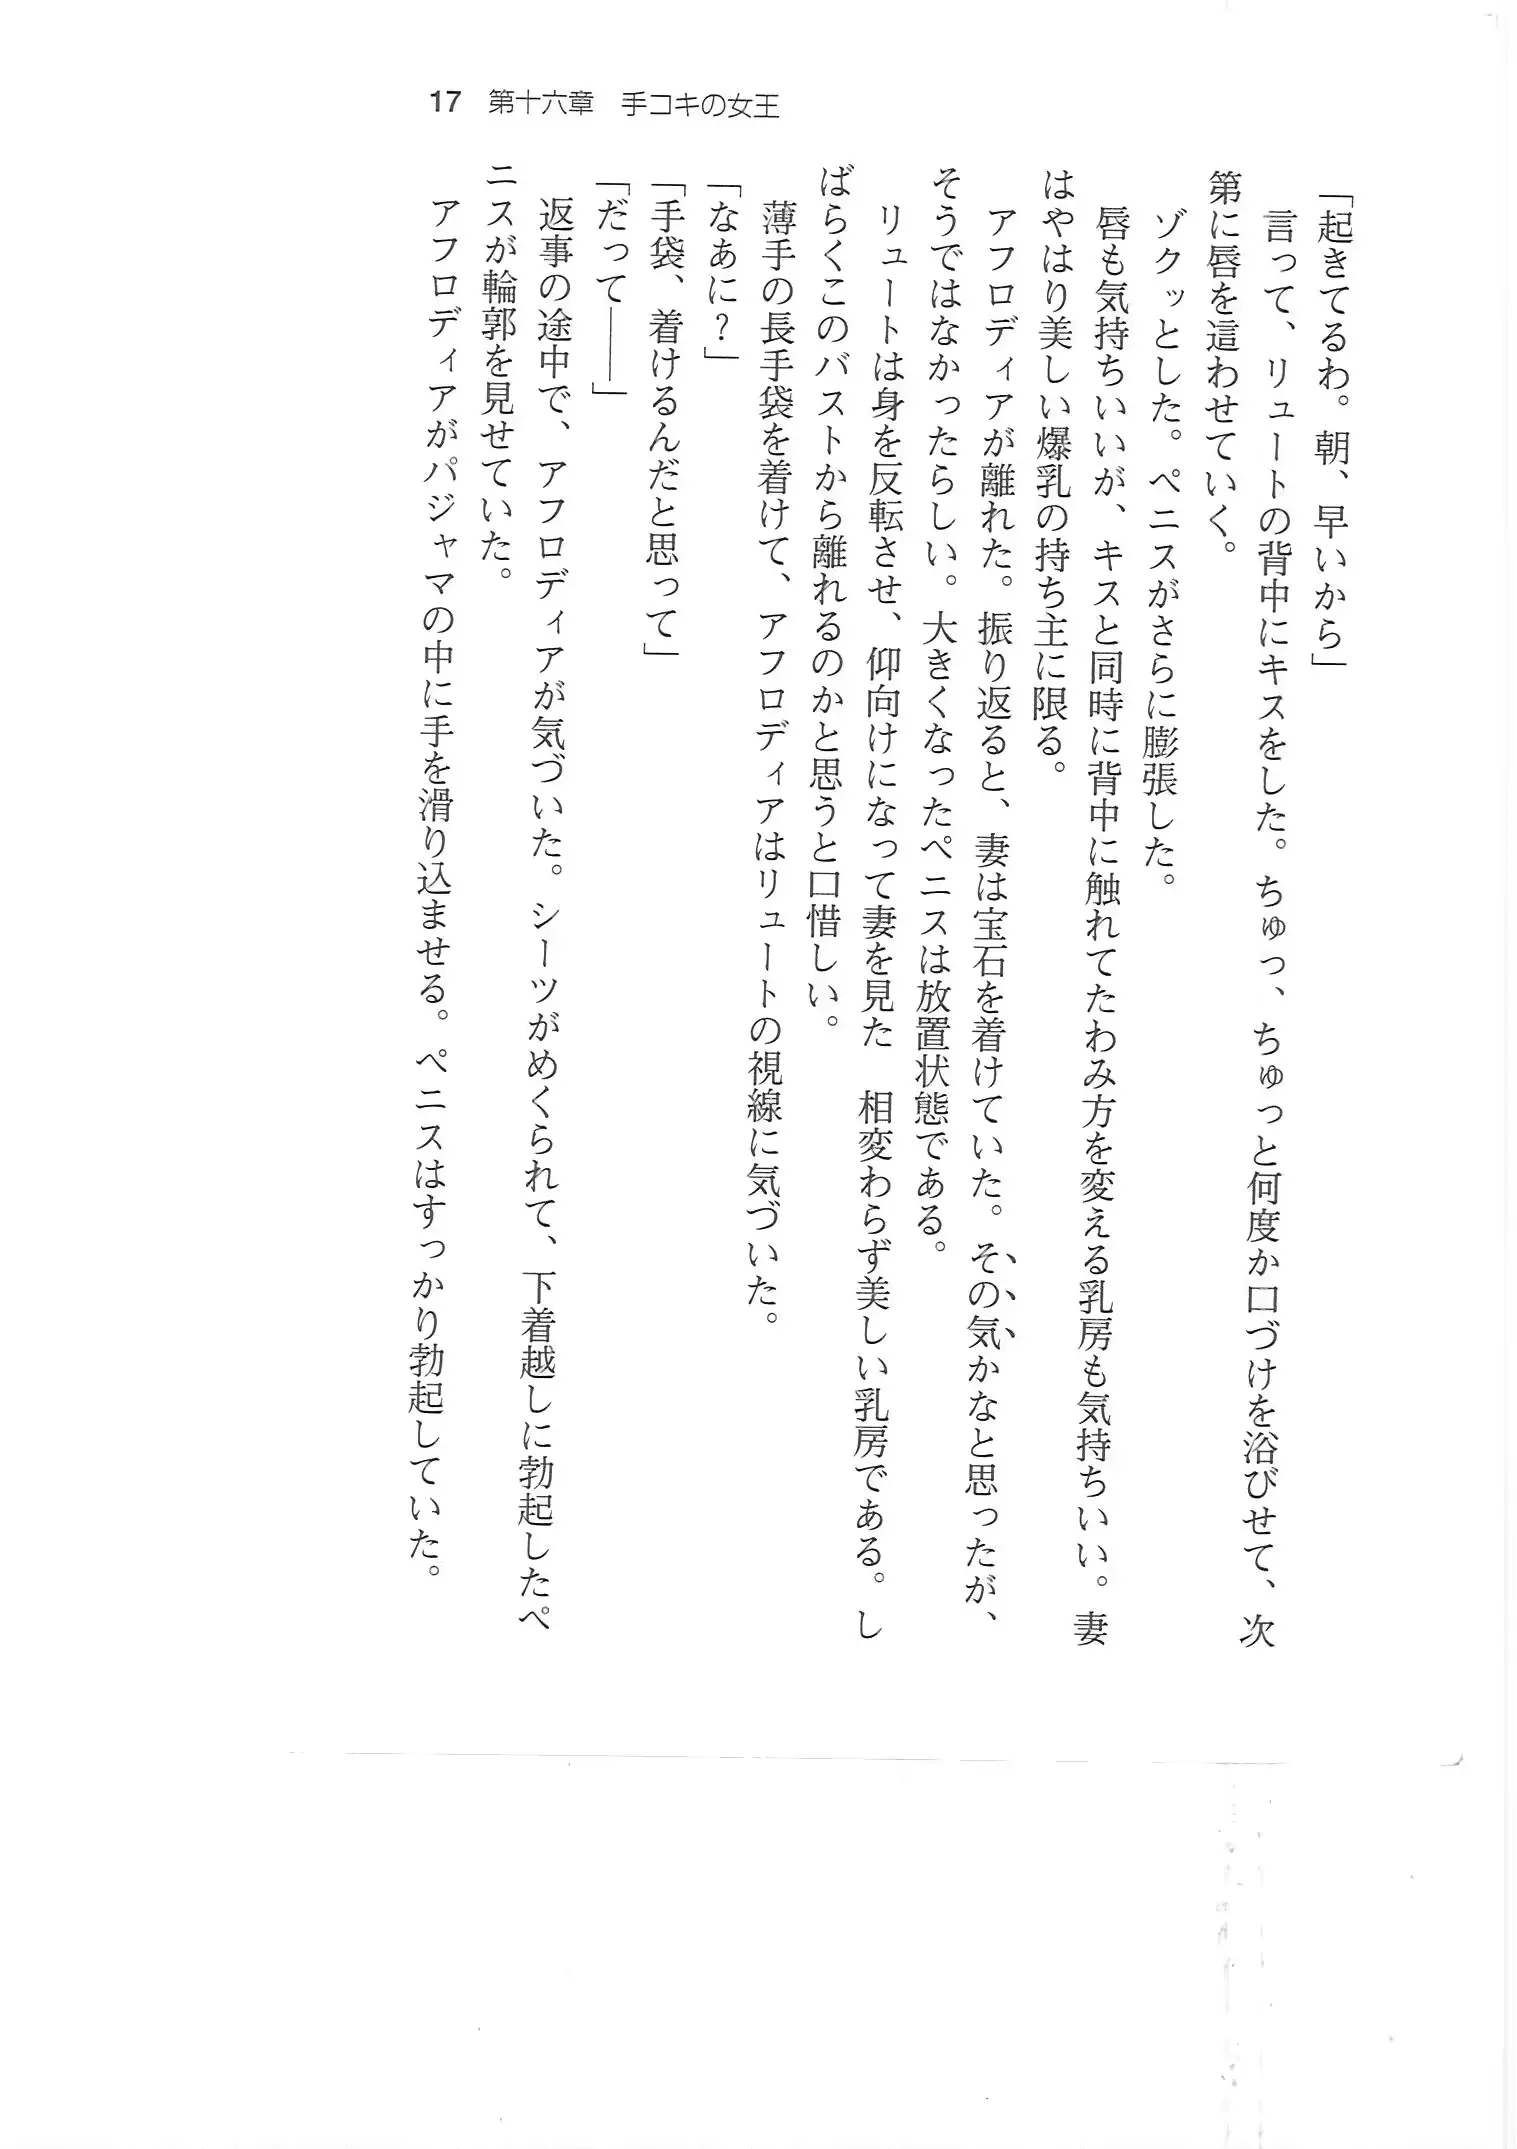 17 第十六章 手コキの女王
「起きてるわ。朝、早いから」
言って、リュートの背中にキスをした。ちゅっ、ちゅっと何度か口づけを浴びせて、次
第に唇を這わせていく。
ゾクッとした。ペニスがさらに膨張した。
唇も気持ちいいが、キスと同時に背中に触れてたわみ方を変える乳房も気持ちいい。妻
はやはり美しい爆乳の持ち主に限る。
アフロディアが離れた。振り返ると、妻は宝石を着けていた。その気かなと思ったが、
そうではなかったらしい。大きくなったペニスは放置状態である。
リュートは身を反転させ、仰向けになって妻を見た　相変わらず美しい乳房である。し
ばらくこのバストから離れるのかと思うと口惜しい。
薄手の長手袋を着けて、アフロディアはリュートの視線に気づいた。
「なあに？」
「手袋、着けるんだと思って」
「だって――」
返事の途中で、アフロディアが気づいた。シーツがめくられて、下着越しに勃起したペ
ニスが輪郭を見せていた。
アフロディアがパジャマの中に手を滑り込ませる。ペニスはすっかり勃起していた。